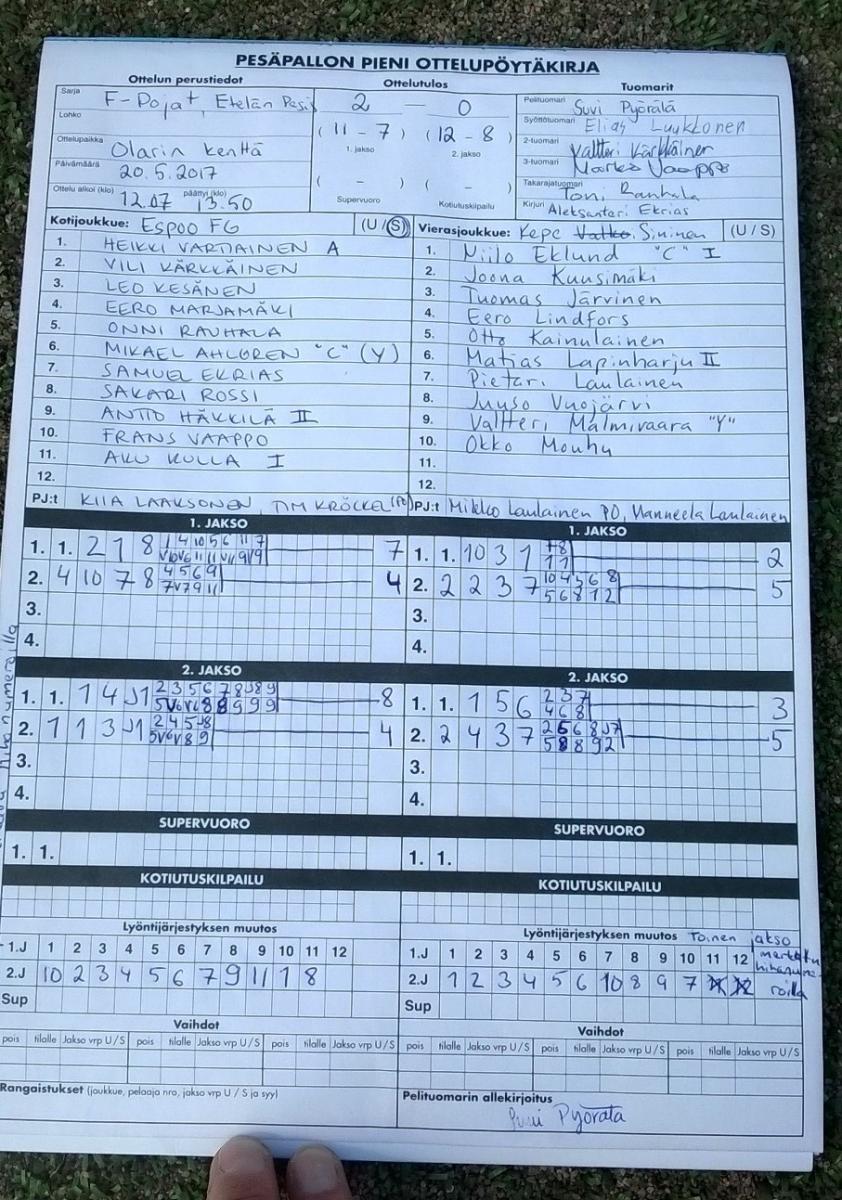 PESÄPALLON PIENI OTTELUPÖYTÄKIRJA
Ottelun perustiedot
Sarja F-Pojat, Etelän
Lohko
Ottelupaikka Olarin kenttä
Päivämäärä 20.5.2017
Ottelu alkoi (klo) 12.07 päättyi (klo) 13.50
Ottelutulos
2 – 0
(11 – 7) (12 – 8)
1. jakso 2. jakso
( – ) ( – )
Supervuoro Kotiutuskilpailu
Tuomarit
Pelituomari Suvi Pyörälä
Syöttötuomari Elias Luukkonen
2-tuomari Valtteri Kärkkäinen
3-tuomari Marko Vaappo
Takarajatuomari Toni Rauhala
Kirjuri Aleksanteri Ekrias
Kotijoukkue: Espoo FG (U/S)
1. HEIKKI VARTIAINEN A
2. VILI KÄRKKÄINEN
3. LEO KESÄNEN
4. EERO MARJAMÄKI
5. ONNI RAUHALA
6. MIKAEL AHLGREN "C" (Y)
7. SAMUEL EKRIAS
8. SAKARI ROSSI
9. ANTTO HÄKKILÄ II
10. FRANS VAAPPO
11. AKU KULLA I
12.
PJ:t KIIA LAAKSONEN, TIM KRÖCKEL
Vierasjoukkue: Kepe Sininen (U/S)
1. Niilo Eklund "C" I
2. Joona Kuusimäki
3. Tuomas Järvinen
4. Eero Lindfors
5. Otto Kainulainen
6. Matias Lapinharju II
7. Pietari Laulainen
8. Juuso Vuojärvi
9. Valtteri Malmivaara "Y"
10. Okko Mouhu
11.
12.
PJ:t Mikko Laulainen PO, Hanneela Laulainen
1. JAKSO
1. 1. 2 1 8 7
2. 4 10 7 8 4 5 6 9 4
3.
4.
1. JAKSO
1. 1. 10 3 1 2
2. 2 2 3 7 10 4 5 6 8 5
5 6 8 1 2
3.
4.
2. JAKSO
1. 1. 1 4 J1 2 3 5 6 7 8 J8 9 8
2. 1 1 3 J1 2 4 5 J8 4
3.
4.
2. JAKSO
1. 1. 1 5 6 2 3 7 3
4 6 8
2. 2 4 3 7 5
5 8 8 9 2
3.
4.
SUPERVUORO
1. 1.
SUPERVUORO
1. 1.
KOTIUTUSKILPAILU
KOTIUTUSKILPAILU
Lyöntijärjestyksen muutos
1.J 1 2 3 4 5 6 7 8 9 10 11 12
2.J 10 2 3 4 5 6 7 9 11 1 8
Sup
Lyöntijärjestyksen muutos Toinen jakso
1.J 1 2 3 4 5 6 7 8 9 10 11 12
2.J 1 2 3 4 5 6 10 8 9 7
Sup
Vaihdot
pois tilalle Jakso vrp U/S pois tilalle Jakso vrp U/S pois tilalle Jakso vrp U/S
Vaihdot
pois tilalle Jakso vrp U/S pois tilalle Jakso vrp U/S pois tilalle Jakso vrp U/S
Rangaistukset (joukkue, pelaaja nro, jakso vrp U / S ja syy)
Pelituomarin allekirjoitus
Suvi Pyörälä